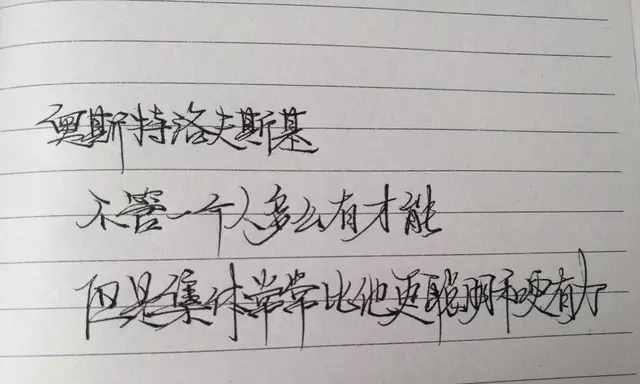 奥斯特洛夫斯基
不管一个人多么有才能
但是集体常常比他更聪明和更有力